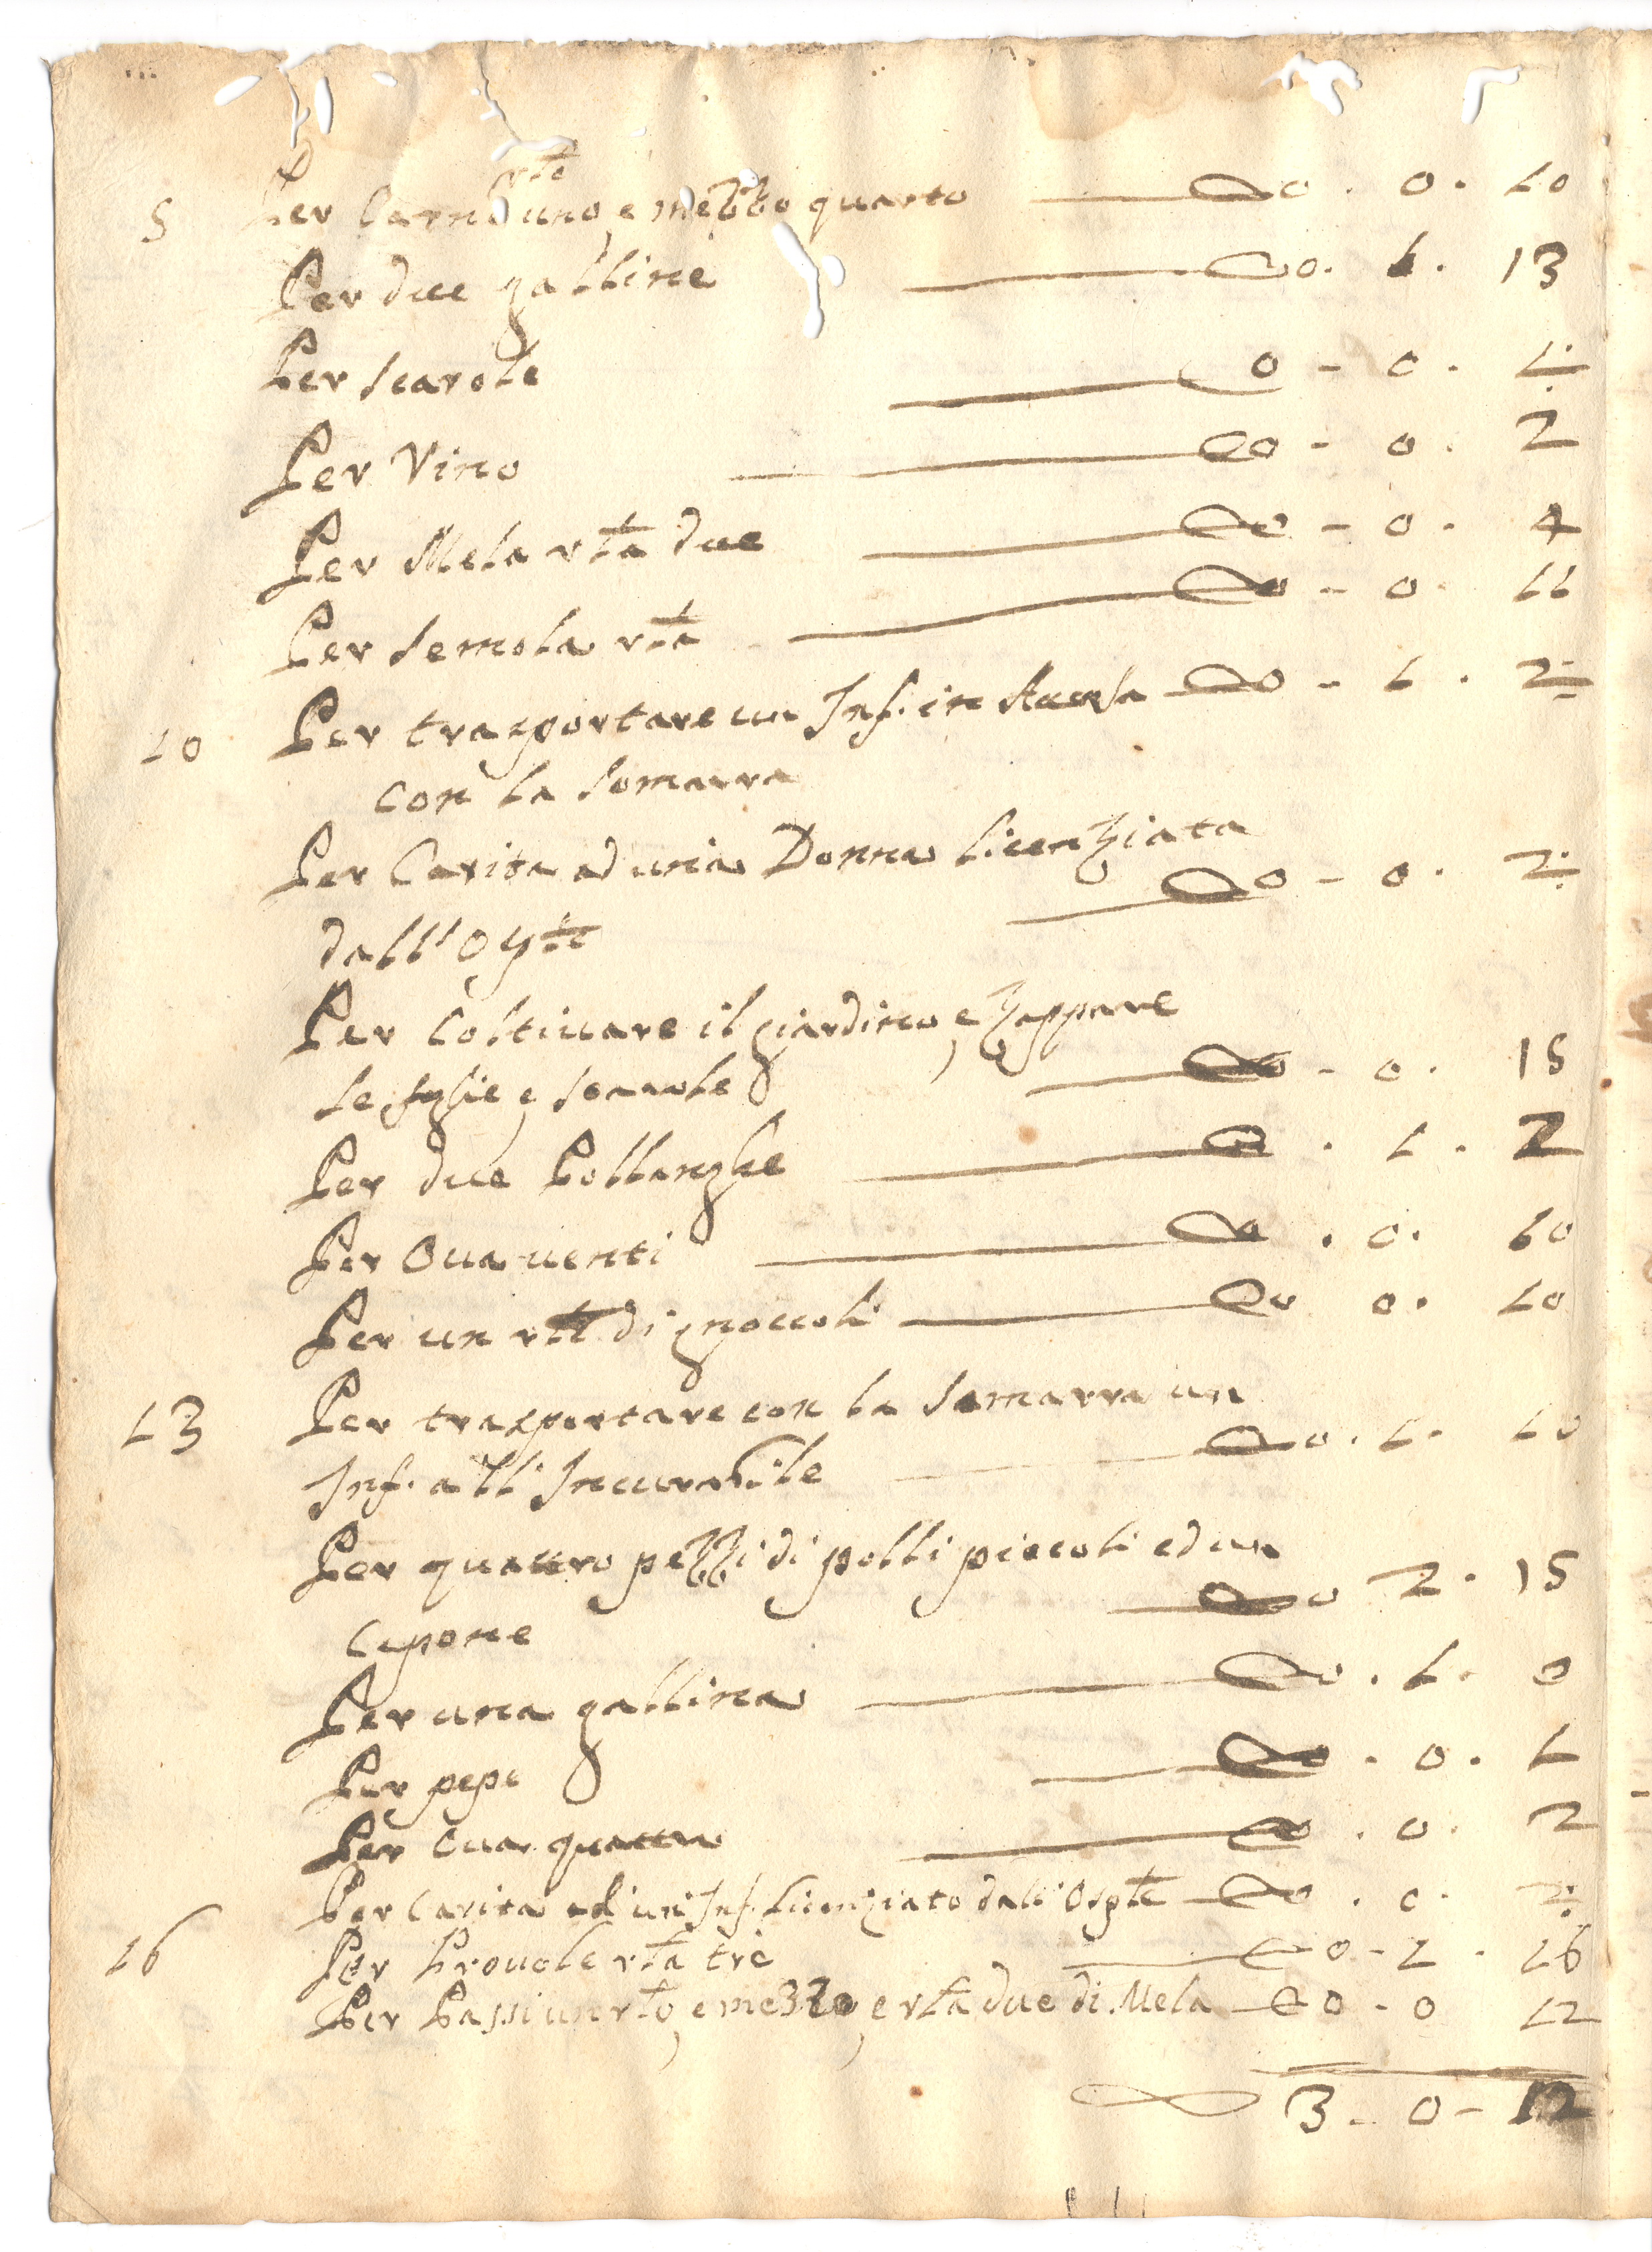 5 Per Carne rt̃e uno, e mezzo quarto 0 . 0 . 10
Per due galline 0 . 1 . 13
Per scarole 0 - 0 . 1÷
Per Vino 0 - 0 . 2
Per Mela rt̃a due 0 - 0 . 4
Per semola rt̃a 0 - 0 . 11
10 Per trasportare un Inf. in Auersa 0 - 1 . 2÷
con la somarra
Per Carita ad una Donna licenziata
dall' Ospt̃e 0 - 0 . 2÷
Per Coltiuare il giardino, e zappare
le foglie, e scarole 0 - 0 . 15
Per due Pollanghe 0 . 1 . 2
Per Oua uenti 0 . 0 . 10
Per un rt̃o di gnoccoli 0 0 . 10
13 Per trasportare con la somarra un
Inf. all' Incurabile 0 . 1 . 10
Per quattro pezzi di polli piccoli ed un
Capone 0 2 . 15
Per una gallina 0 . 1 . 0
Per pepe 0 . 0 . 1
Per Oua quattro 0 . 0 . 2
Per Carita ad un Inf. licenziato dall' Osplt̃e 0 . 0 . 2÷
16 Per Prouole rt̃a tre 0 - 2 . 16
Per Passi un rt̃o, e mezzo, e rt̃a due di Mela 0 - 0 12
3 - 0 - 12